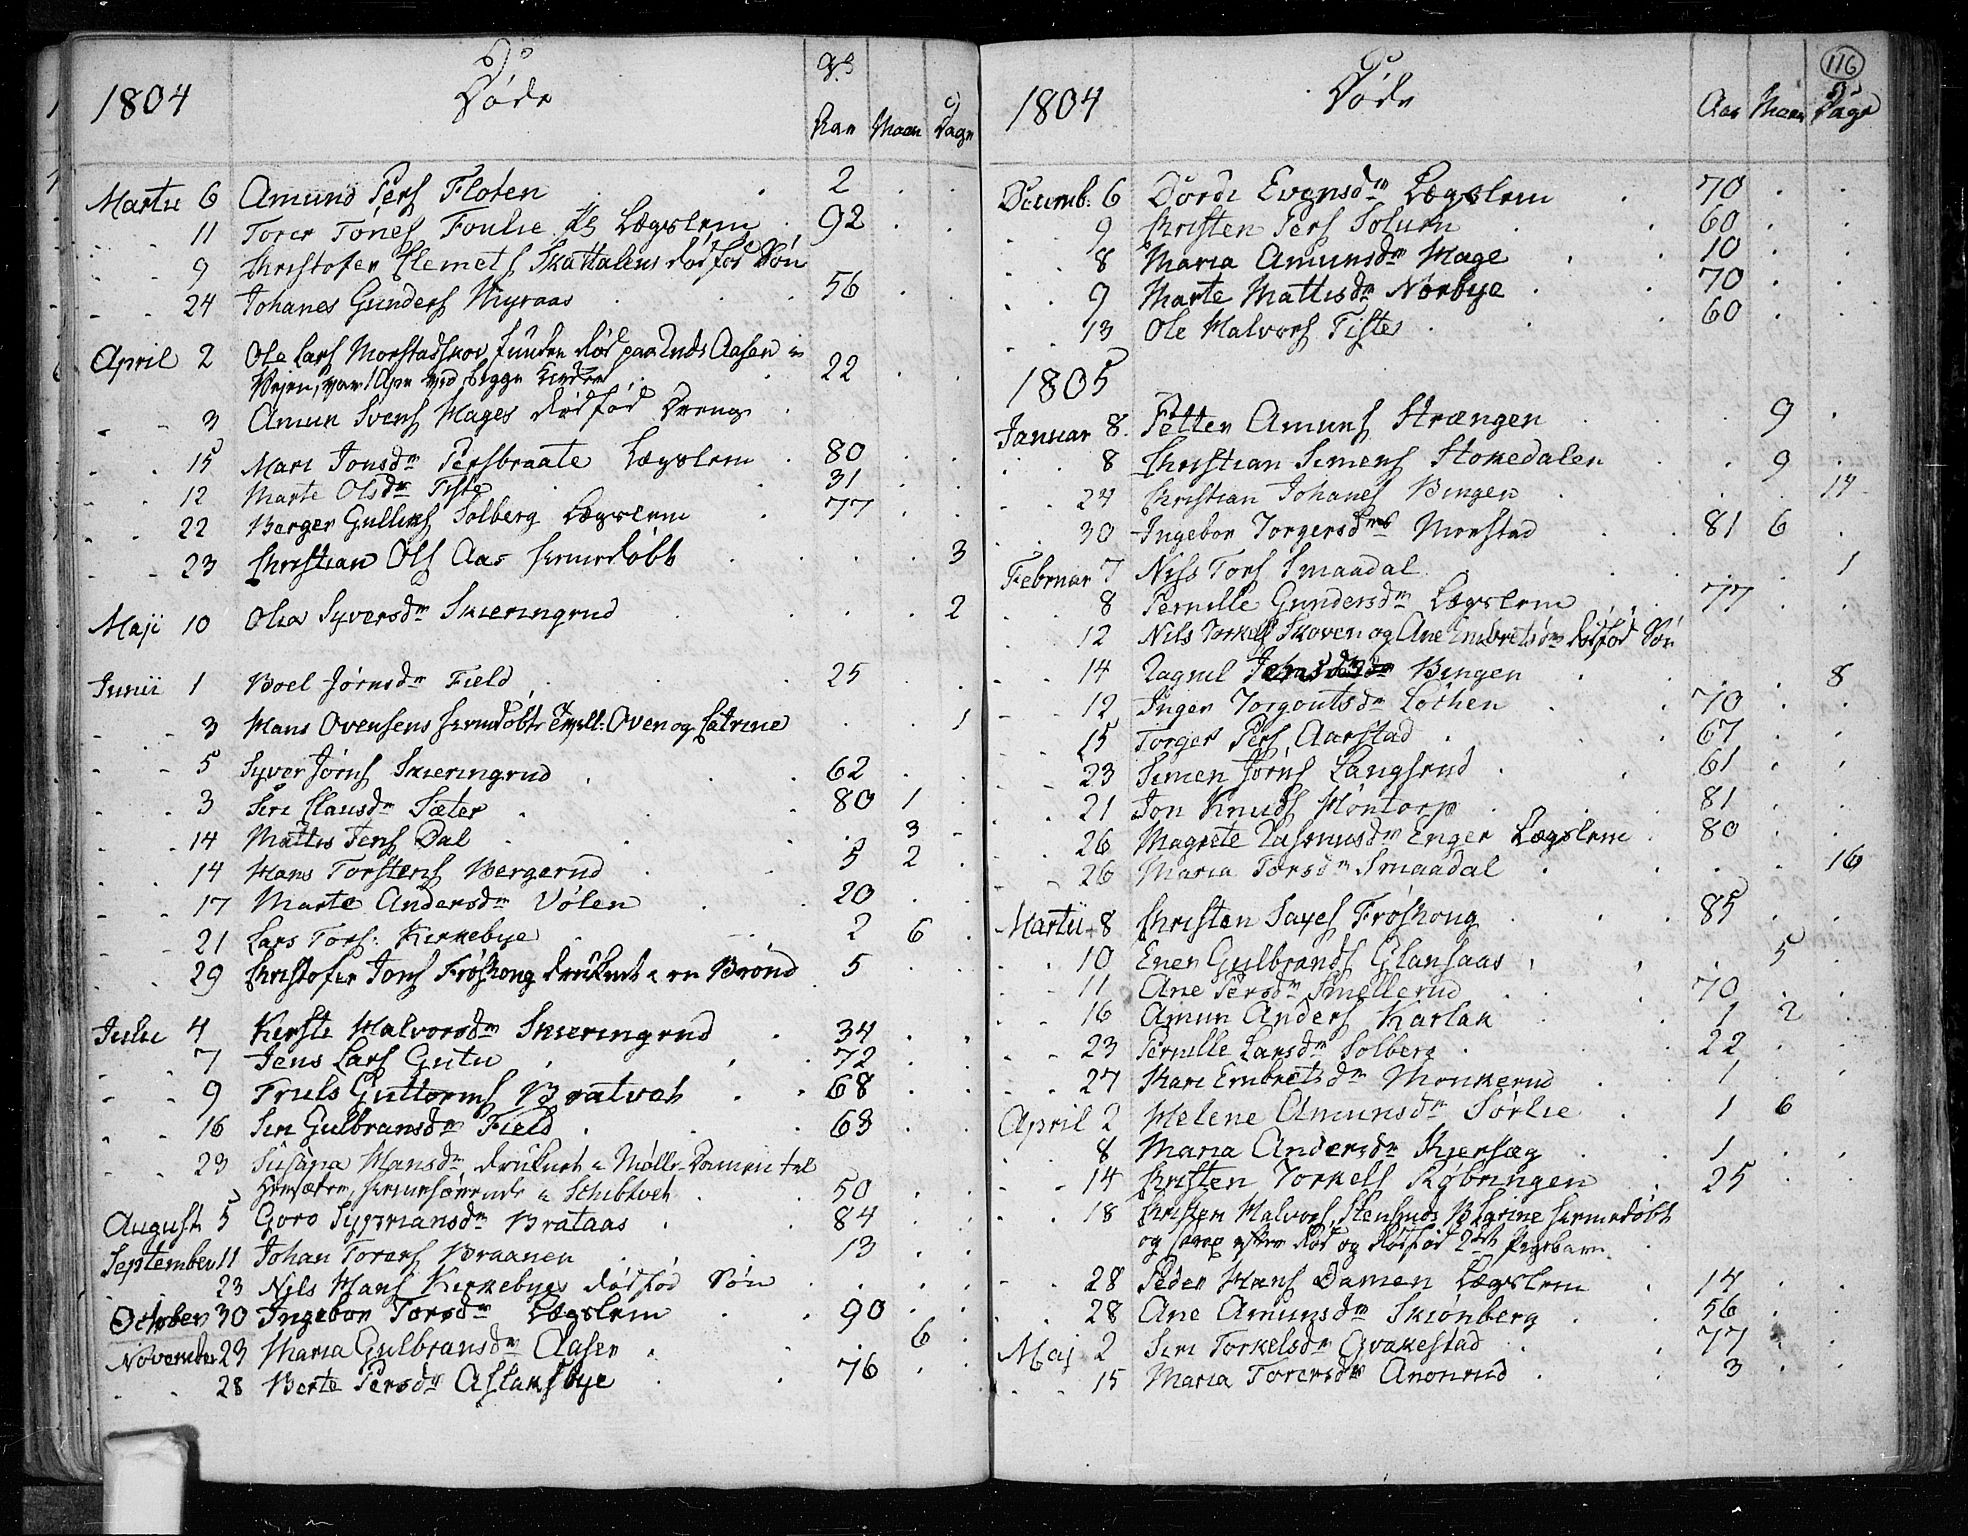 1804 Døde Aar Maan Dage
Martii 6 Amund Pers Floten 2
11 Torer Tones Foulie Lægslem 92
9 Christofer Clemets Skattalens dødfød Søn
24 Johanes Gunders Myraas 56
April 2 Ole Lars Morstadskov funden død paa Aasen
Vejen, var 22
3 Amun Svens Hages dødfød Dreng
15 Mari Jonsdr Persbraate Lægslem 80
12 Marte Olsdr Tiste 31
22 Berger Gulliks Solberg Lægslem 77
23 Christian Ols Aas hiemedøbt 3
Maji 10 Olia Syversdr Skieringrud 2
Junii 1 Boel Jørnsdr Field 25
3 Hans Ovensens hiemdøbt Oven og Catrine 1
5 Syver Jørns Skieringrud 62
3 Siri Clausdr Sæter 80 1
14 Mattis Jens Dal 3
14 Hans Torstens Bergerud 5 2
17 Marte Andersdr Vølen 20
21 Lars Tors: Kirkebye 2 6
29 Christofer Jons Frøshong druknet i en Brønd 5
Julii 4 Kirste Halvorsdr Skieringrud 34
7 Jens Lars Gutu 72
9 Truls Guttorms Bratvet 68
16 Siri Gulbransdr Field 63
23 Susana Hansdr druknet i Mølle-Damen
hiemhørende i Schibtvet 50
August 5 Goro Syprriansdr Brataas 84
September 11 Johan Torers Braanen 13
23 Nils Hans Kirkebyes dødfød Søn
October 30 Ingebor Torsdr Lægslem 90
November 23 Maria Gulbransdr Aasen 6
28 Berte Persdr Aslaksbye 76
116
1804 Døde Aar Maan Dage
Decemb: 6 Dorde Evensdr Lægslem 70
9 Christen Pers Solum 60
8 Maria Amunsdr Hage 10
9 Marte Mattisdr Norbye 70
13 Ole Halvors Tiste 60
1805
Januar 8. Petter Amuns Strængen 9
8 Christian Simens Stomedalen 9
24 Christian Johanes Bingen 14
30 Ingebor Torgersdr Morstad 81 6
Februar 7 Niss Tors Smaadal 1
8 Pernille Gundersdr Lægslem 77
12 Nils Torkels Skoven og Ane Embretsdr dødfød Søn
14 Ragnil Bingen 8
12 Inger Torgoutsdr Løthen 70
15 Torger Pers Aarstad 67
23 Simen Jørns Langsrud 61
21 Jon Knuds Høntorp 81
26 Magrete Rasmusdr Enger Lægslem 80
26 Maria Torsdr Smaadal 16
Martii 8 Christen Sayes Frøshong 85
10 Ener Gulbrands Glansaas 5
11 Ane Persdr Smellerud 70
16 Amun Anders Harlak 1 2
23 Pernille Larsdr Solberg 22
27 Kari Embretsdr Monkerud 1
April 2 Helene Amunsdr Sørlie 1 6
8 Maria Andersdr Kiersæg 1
14 Christen Torkels Røbringen 25
18 Christen Halvors Stensruds hiemedøbt
og død og dødfød Pigebarn
28 Peder Hans Damen Lægslem 14
28 Ane Amunsdr Skionberg 56
Maj 2 Siri Torkelsdr Qvakestad 77
15 Maria Torersdr Anonrud 3